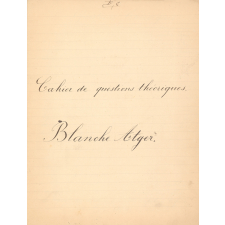 Cahier de questions théoriques.
Blanche Alger.